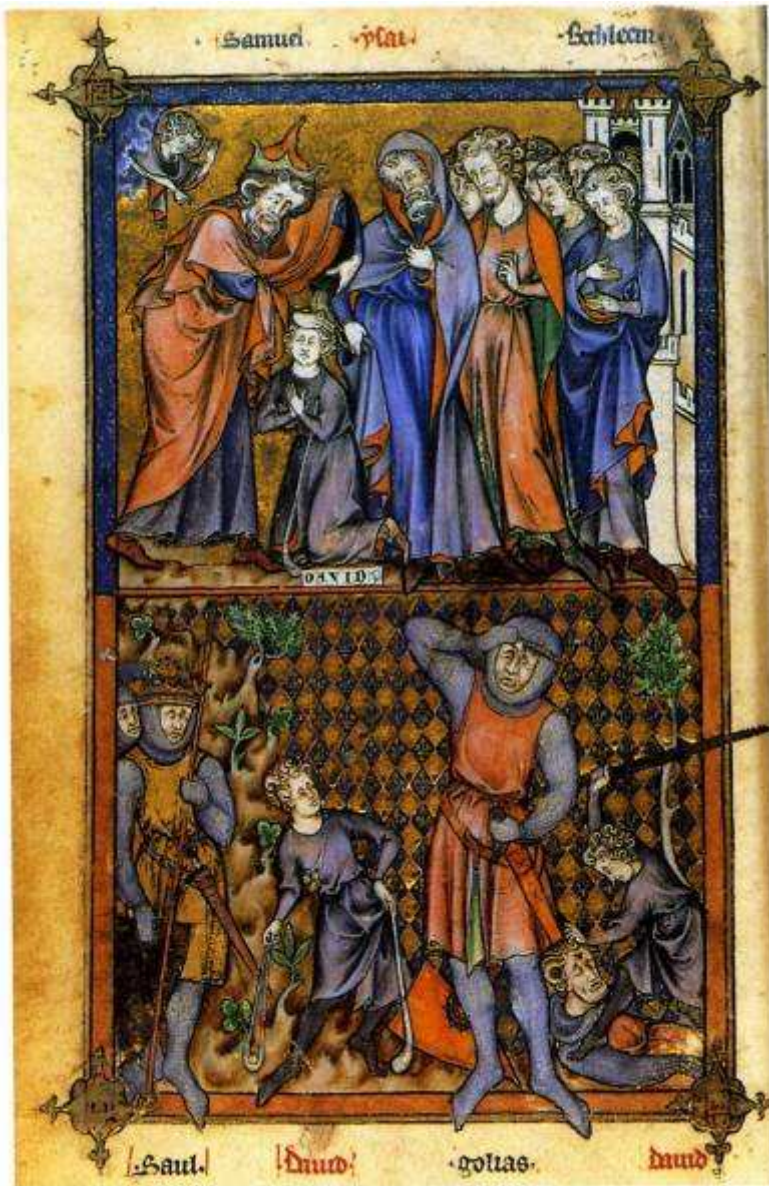 ·Samuel· ·ysai· ·Bethleem·
DAVID
·Saul· dauid· ·golias· dauid